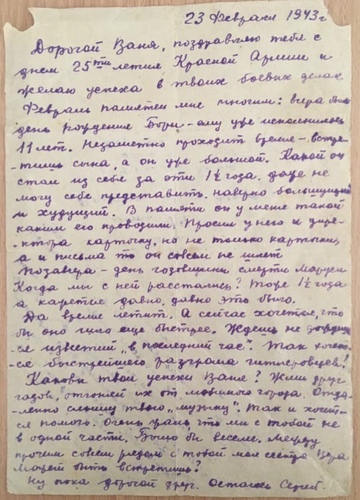 23 Февраля 1943 г
Дорогой Ваня, поздравляю тебя с
днем 25ти летия Красной Армии и
желаю успеха в твоих боевых делах
Февраль памятен мне многим: вчера был
день рождение Бори - ему уже исполнилось
11 лет. Незаметно проходит время - встре-
тишь сына, а он уже большой. Какой он
стал из себя за эти 1½ года, даже не
могу себе представить, наверно большущий
и худущий. В памяти он у меня такой
каким его проводили. Просил у него и
карточку, но не только карточки,
а и письма то он совсем не шлет
Позавчера - день годовщины смерти
Когда мы с ней расстались? Тоже 1½ года
а кажется давно, давно это было.
Да время летит. А сейчас хочется, что
бы оно шло еще быстрее. Ждешь не
ся известий "в последний час". Так хочет-
ся быстрейшего разгрома гитлеровцев!
Каковы твои успехи Ваня? Жми друг
гадов, отгоняй их от любимого города. Отда-
ленно слышу твою "музыку". Так и хочет-
ся помочь. Очень жаль что мы с тобой не
в одной части. было бы веселе. Между
прочим совсем рядом с тобой моя сестра Вера
Может быть встретишь?
Ну пока дорогой друг. Остаюсь